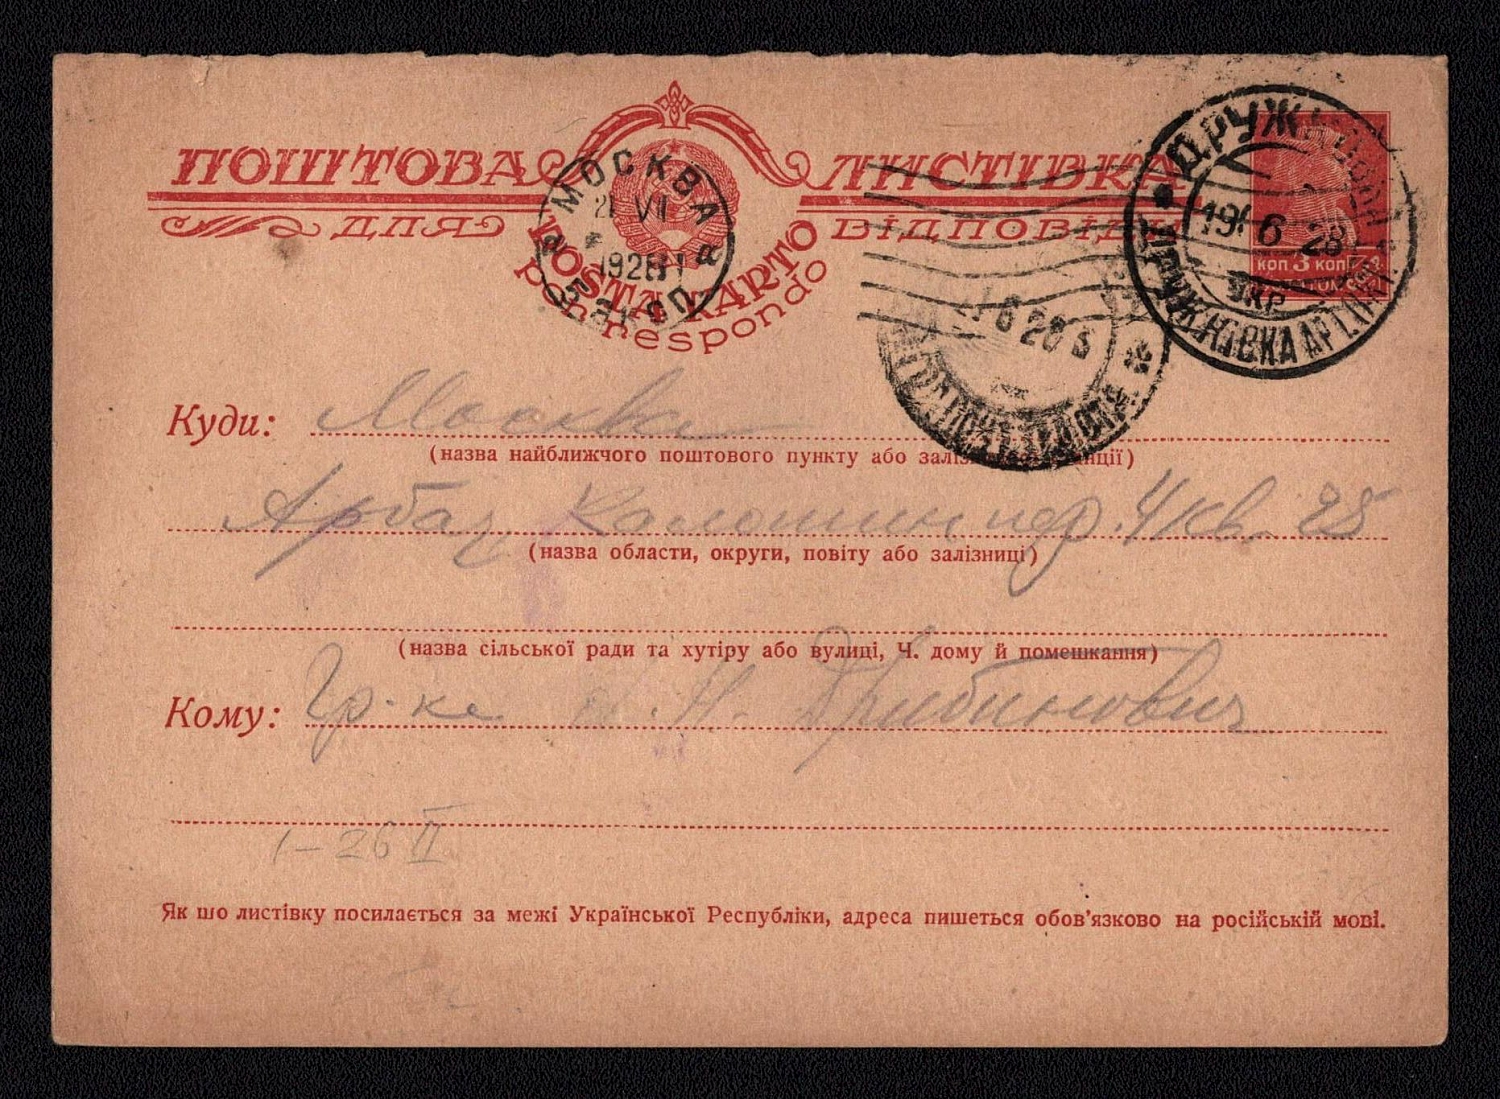 ПОШТОВА ЛИСТІВКА
ДЛЯ ВІДПОВІДИ
POŜTA KARTO
por respondo
МОСКВА
VII
1928
19 6 28
УКР
ДРУЖКІВКА АРТ.
6 28
КОП 3 КОП
Куди: Москва
(назва найближчого поштового пункту або станції)
Арбат, Калошин пер. 4 кв. 28
(назва области, округи, повіту або залізниці)
(назва сільської ради та хутіру або вулиці, Ч. дому й помешкання)
Кому: Гр-ке Н. Дрибинович
1–26 II
Як шо листівку посилається за межі Української Республіки, адреса пишеться обов'язково на російській мові.